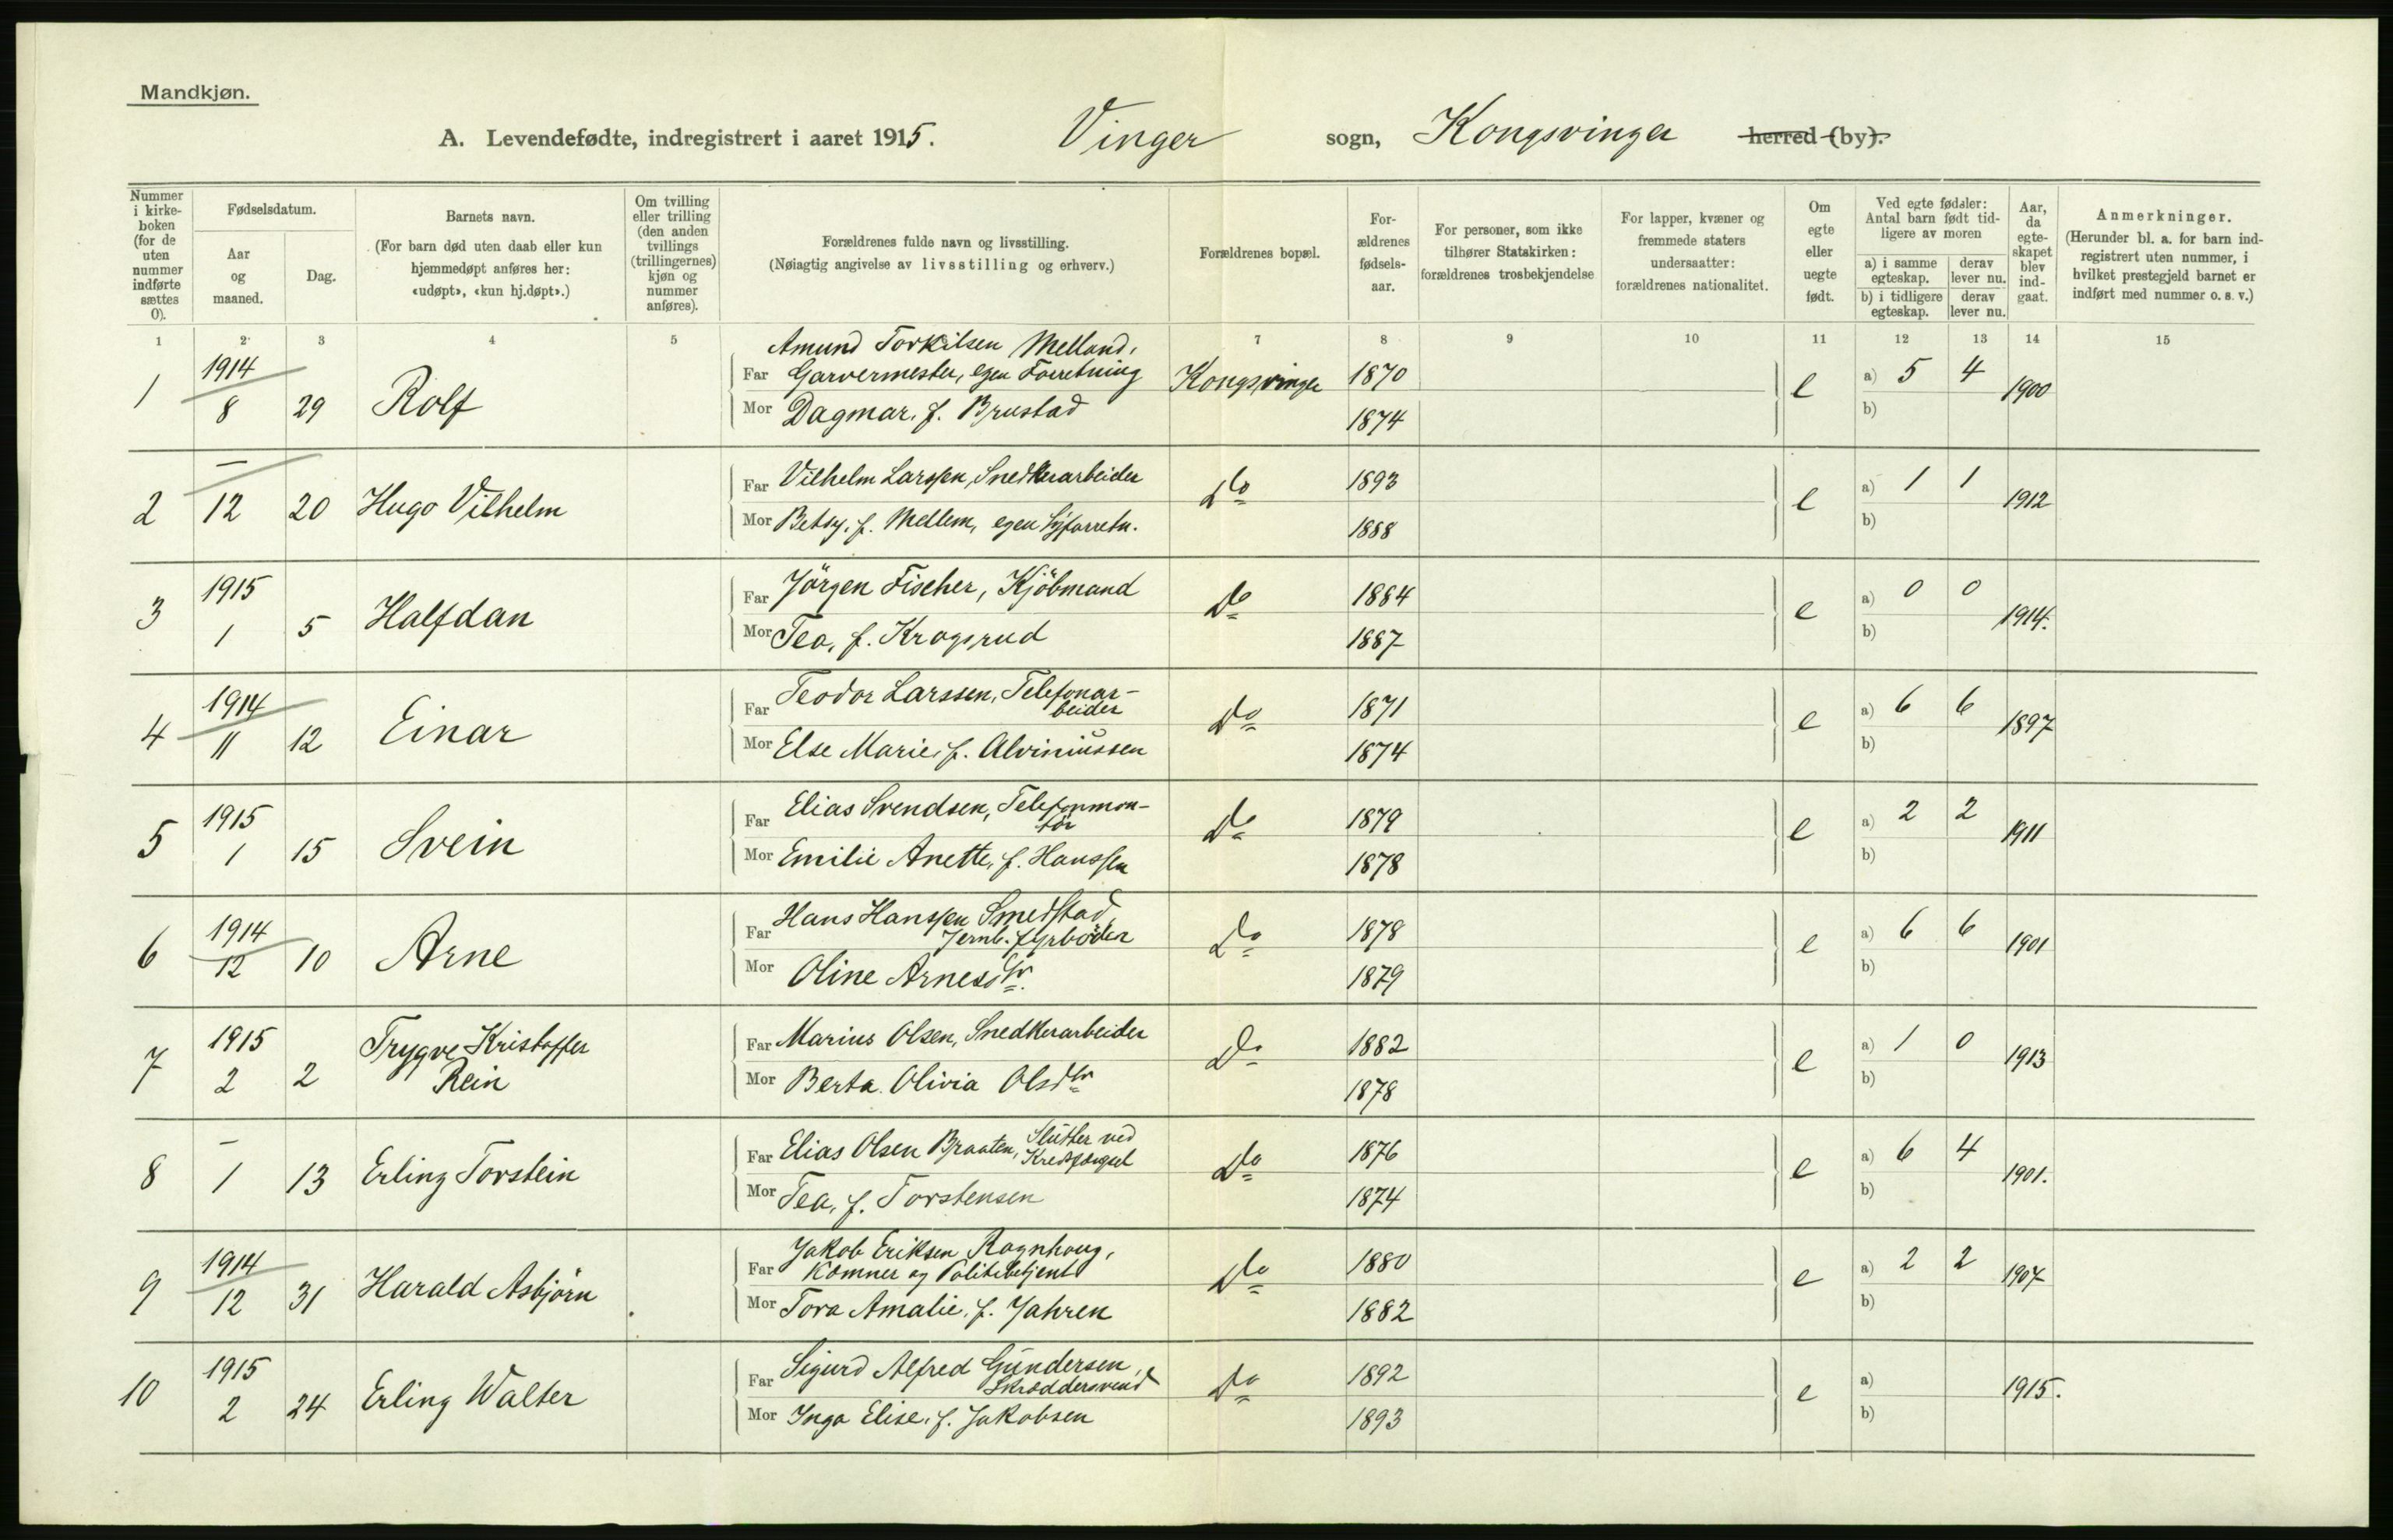 Mandkjøn.
A. Levendefødte, indregistrert i aaret 1915. Vinger sogn, Kongsvinger herred (by).
Nummer i kirke-boken (for de uten nummer indførte sættes 0).
Fødselsdatum.
Aar og maaned.
Dag.
Barnets navn.
(For barn død uten daab eller kun hjemmedøpt anføres her: «udøpt», «kun hj.døpt».)
Om tvilling eller trilling (den anden tvillings (trillingernes) kjøn og nummer anføres).
Forældrenes fulde navn og livsstilling.
(Nøiagtig angivelse av livsstilling og erhverv.)
Forældrenes bopæl.
For-ældrenes fødsels-aar.
For personer, som ikke tilhører Statskirken: forældrenes trosbekjendelse
For lapper, kvæner og fremmede staters undersaatter: forældrenes nationalitet.
Om egte eller uegte født.
Ved egte fødsler: Antal barn født tid-ligere av moren
a) i samme egteskap. derav lever nu.
b) i tidligere egteskap. derav lever nu.
Aar, da egte-skapet blev ind-gaat.
Anmerkninger.
(Herunder bl. a. for barn ind-registrert uten nummer, i hvilket prestegjeld barnet er indført med nummer o. s. v.)
1 2 3 4 5 7 8 9 10 11 12 13 14 15
1 1914 8 29 Rolf
Amund Torkilsen Melland,
Far Garvermester, egen Forretning Kongsvinger 1870 e a) 5 4 1900
Mor Dagmar, f. Brustad 1874 b)
2 — 12 20 Hugo Vilhelm
Far Vilhelm Larssen, Snedkerarbeider Do 1893 e a) 1 1 1912
Mor Betsy, f. Mellem, egen Syforretn. 1888 b)
3 1915 1 5 Halfdan
Far Jörgen Fischer, Kjöbmand Do 1884 e a) 0 0 1914.
Mor Tea, f. Kragsrud 1887 b)
4 1914 11 12 Einar
Far Teodor Larssen, Telefonar-
beider Do 1871 e a) 6 6 1897
Mor Else Marie, f. Alviniussen 1874 b)
5 1915 1 15 Svein
Far Elias Svendsen, Telefonmon-
tör Do 1879 e a) 2 2 1911
Mor Emilie Anette, f. Hanssen 1878 b)
6 1914 12 10 Arne
Far Hans Hanssen Smedstad,
Jernb. fyrböder Do 1878 e a) 6 6 1901
Mor Oline Arnesdtr. 1879 b)
7 1915 2 2 Trygve Kristoffer
Rein
Far Marius Olsen, Snedkerarbeider Do 1882 e a) 1 0 1913
Mor Berta Olivia Olsdtr 1878 b)
8 — 1 13 Erling Torstein
Far Elias Olsen Braaten, Slutter ved
Kredsfængsel Do 1876 e a) 6 4 1901.
Mor Tea, f. Torstensen 1874 b)
9 1914 12 31 Harald Asbjörn
Jakob Eriksen Ragnhaug,
Far Kæmner og Politibetjent Do 1880 e a) 2 2 1907
Mor Tora Amalie, f. Jahren 1882 b)
10 1915 2 24 Erling Walter
Far Sigurd Alfred Gundersen,
Skræddersvend Do 1892 e a) 1915.
Mor Inga Elise, f. Jakobsen 1893 b)